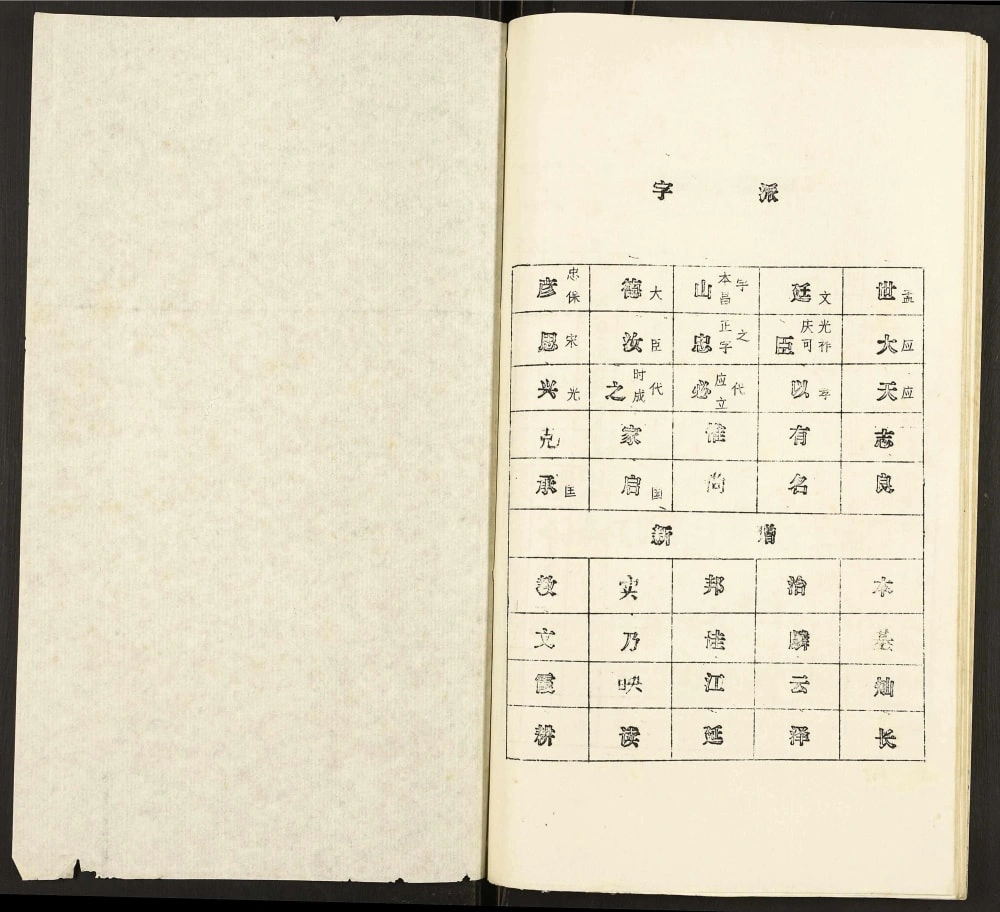 字派
彦 忠保 德 大 山 本昌字 廷 文 世 孟
恩 宋 汝 臣 忠 正字之 臣 庆可光祚 大 应
兴 光 之 时成代 必 应立代 以 孝 天 应
克 家 惟 有 志
承 匡 启 国 尚 名 良
新增
教 实 邦 治 本
文 乃 佳 麟 基
霞 映 江 云 灿
耕 读 延 泽 长